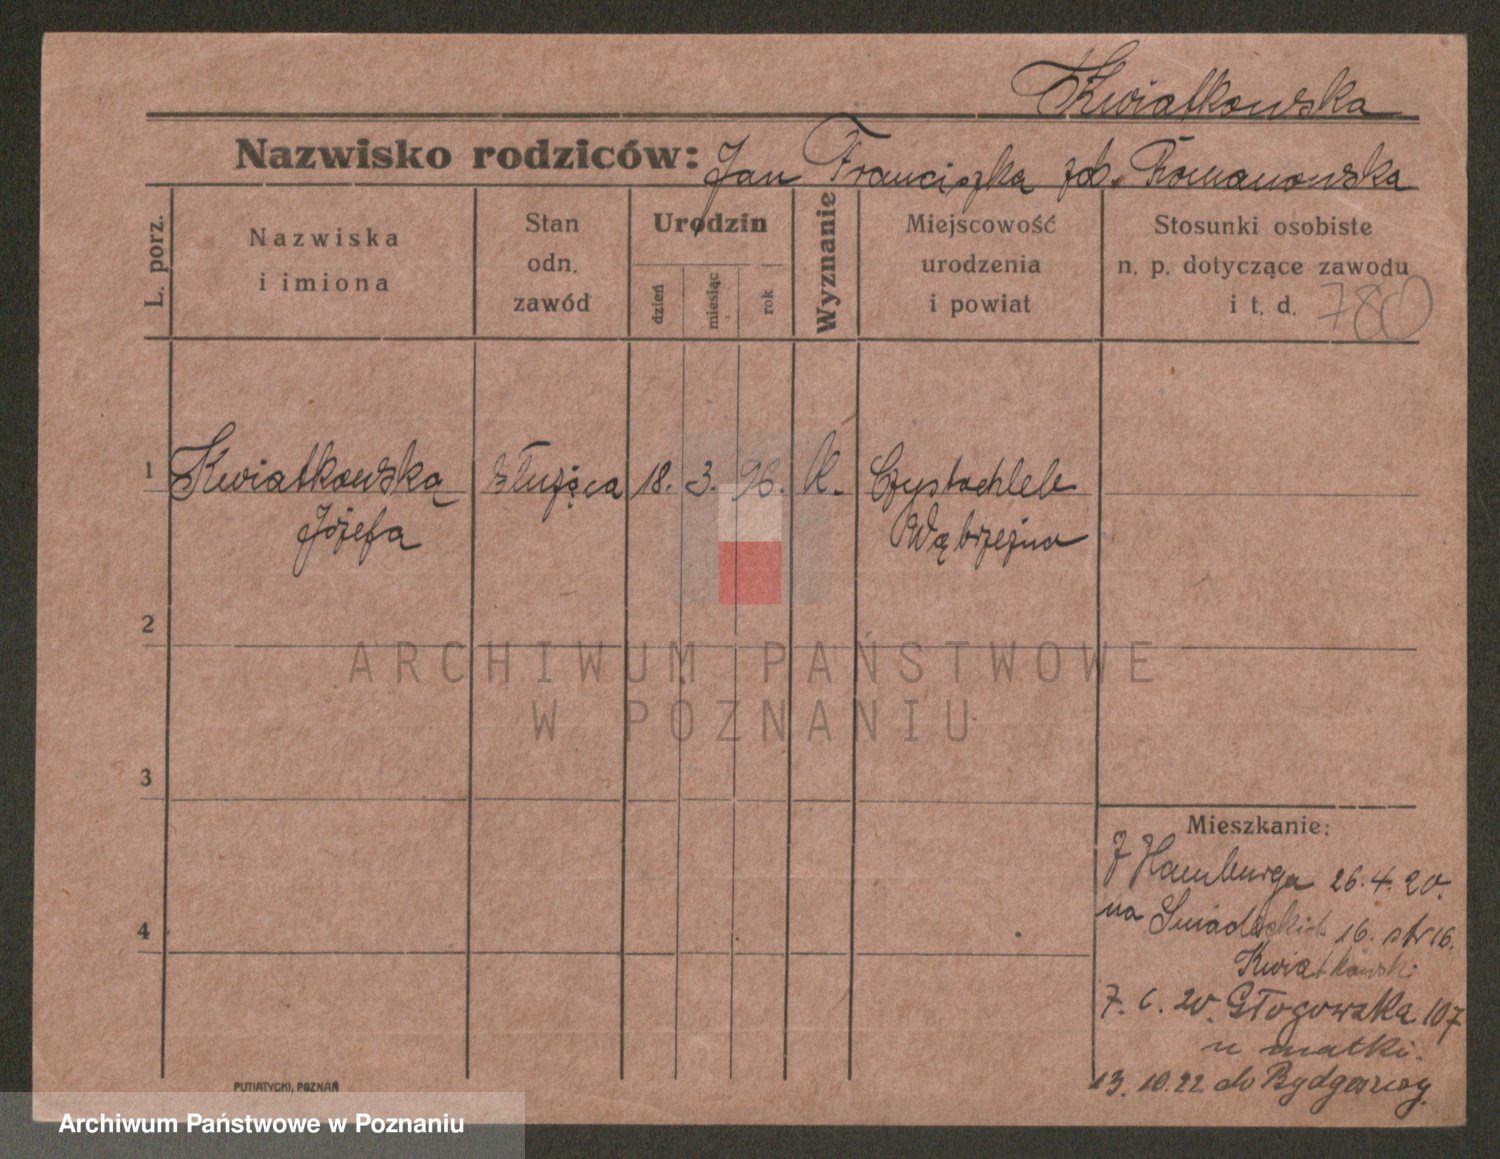 Kwiatkowska
Nazwisko rodziców: Jan Franciszka zd. Romanowska
L. porz.
Nazwiska
i imiona
Stan
odn.
zawód
Urodzin
dzień
miesiąc
rok
Wyznanie
Miejscowość
urodzenia
i powiat
Stosunki osobiste
n. p. dotyczące zawodu
i t. d. 780
1 Kwiatkowska służąca 18. 3. 96. K. Czystochleb
Józefa Wąbrzeźno
2
ARCHIWUM PAŃSTWOWE
W POZNANIU
3
Mieszkanie:
Z Hamburga 26.4.20.
4 na Śniadeckich 16. str 16.
Kwiatkowski
7. 6. 20. Głogowska 107
u matki.
13. 10. 22. do Bydgoszczy
PUTIATYCKI, POZNAŃ
Archiwum Państwowe w Poznaniu